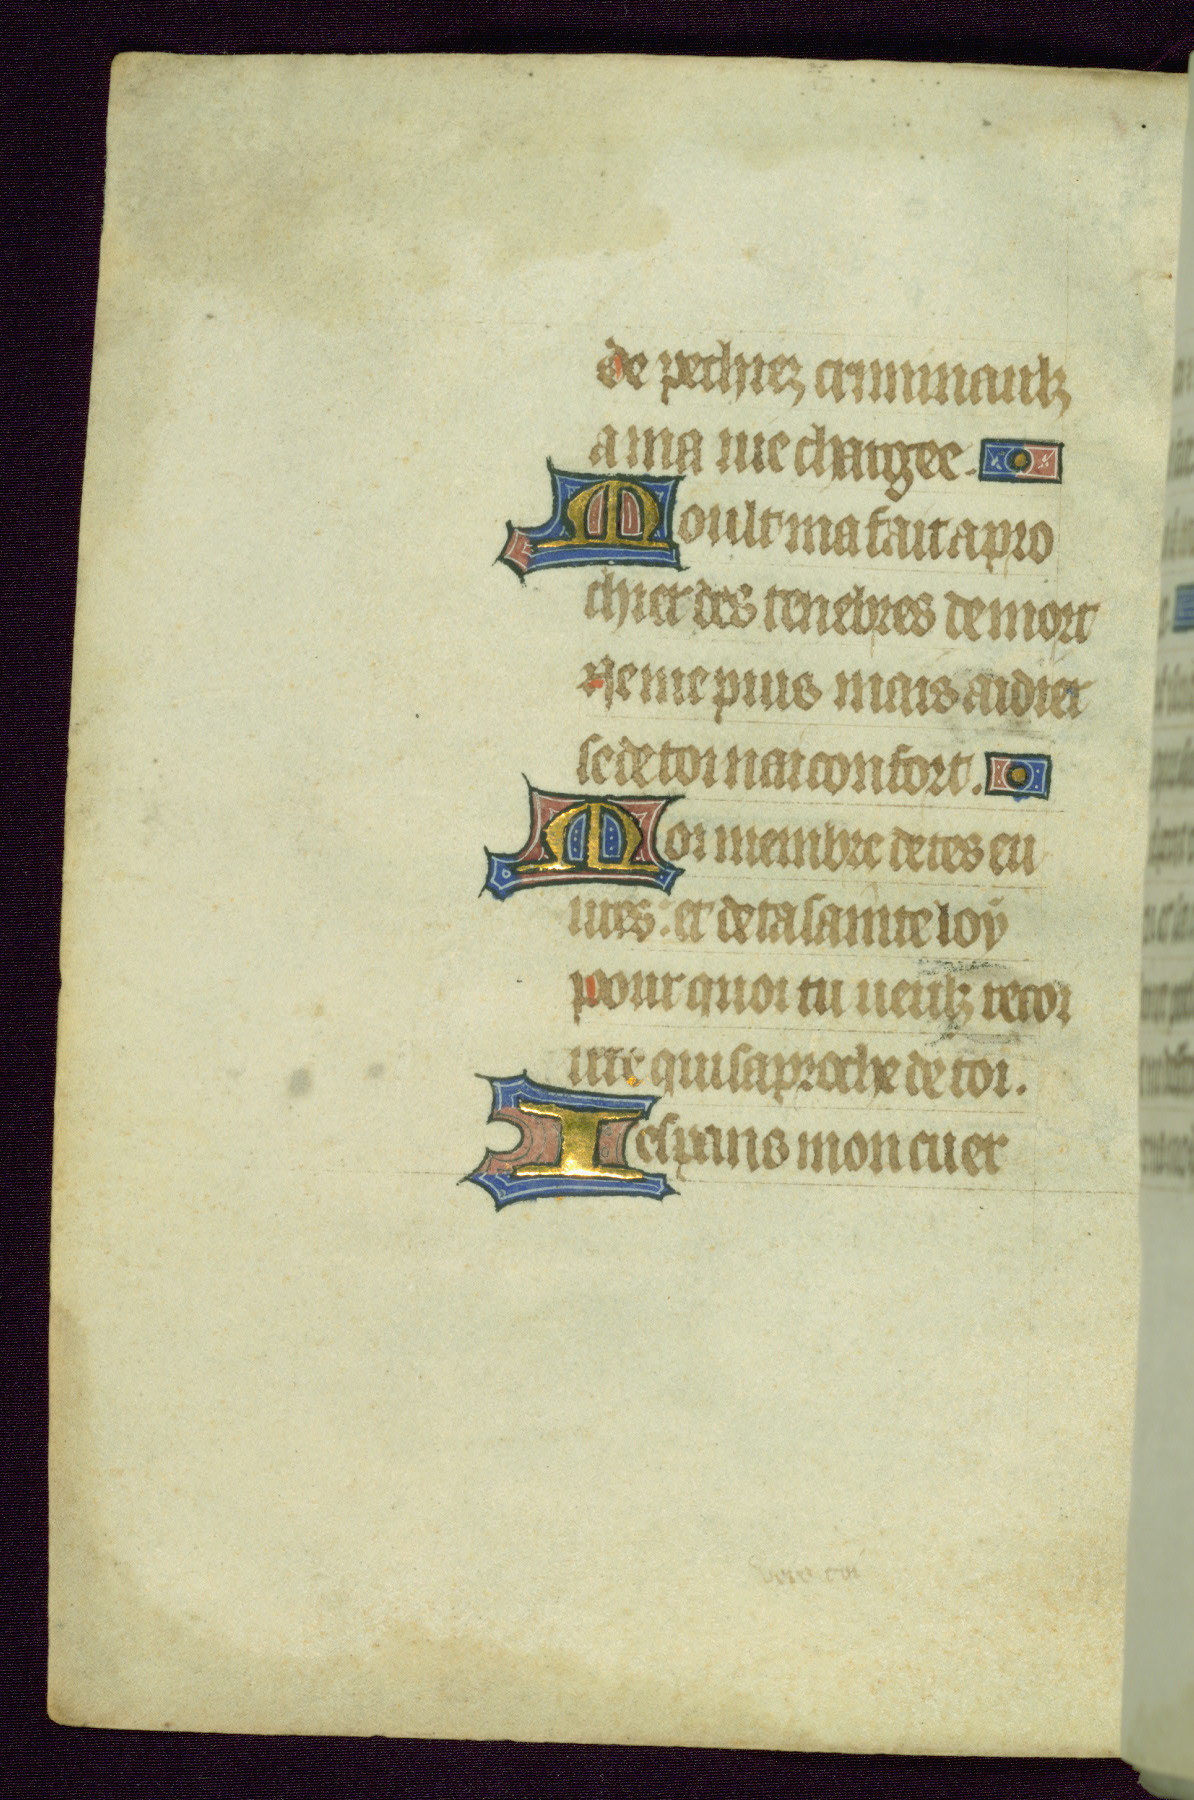 de pechiez criminaulz
a ma uie chargee.
Moult ma fait apro
chier des tenebres de mort
Ne me puis mais aidier
se de toi nai confort.
Moi membre de tes eu
ures: et de ta sainte loy
pour quoi tu ueulz recoi
ure qui saproche de toi.
Iespans mon cuer